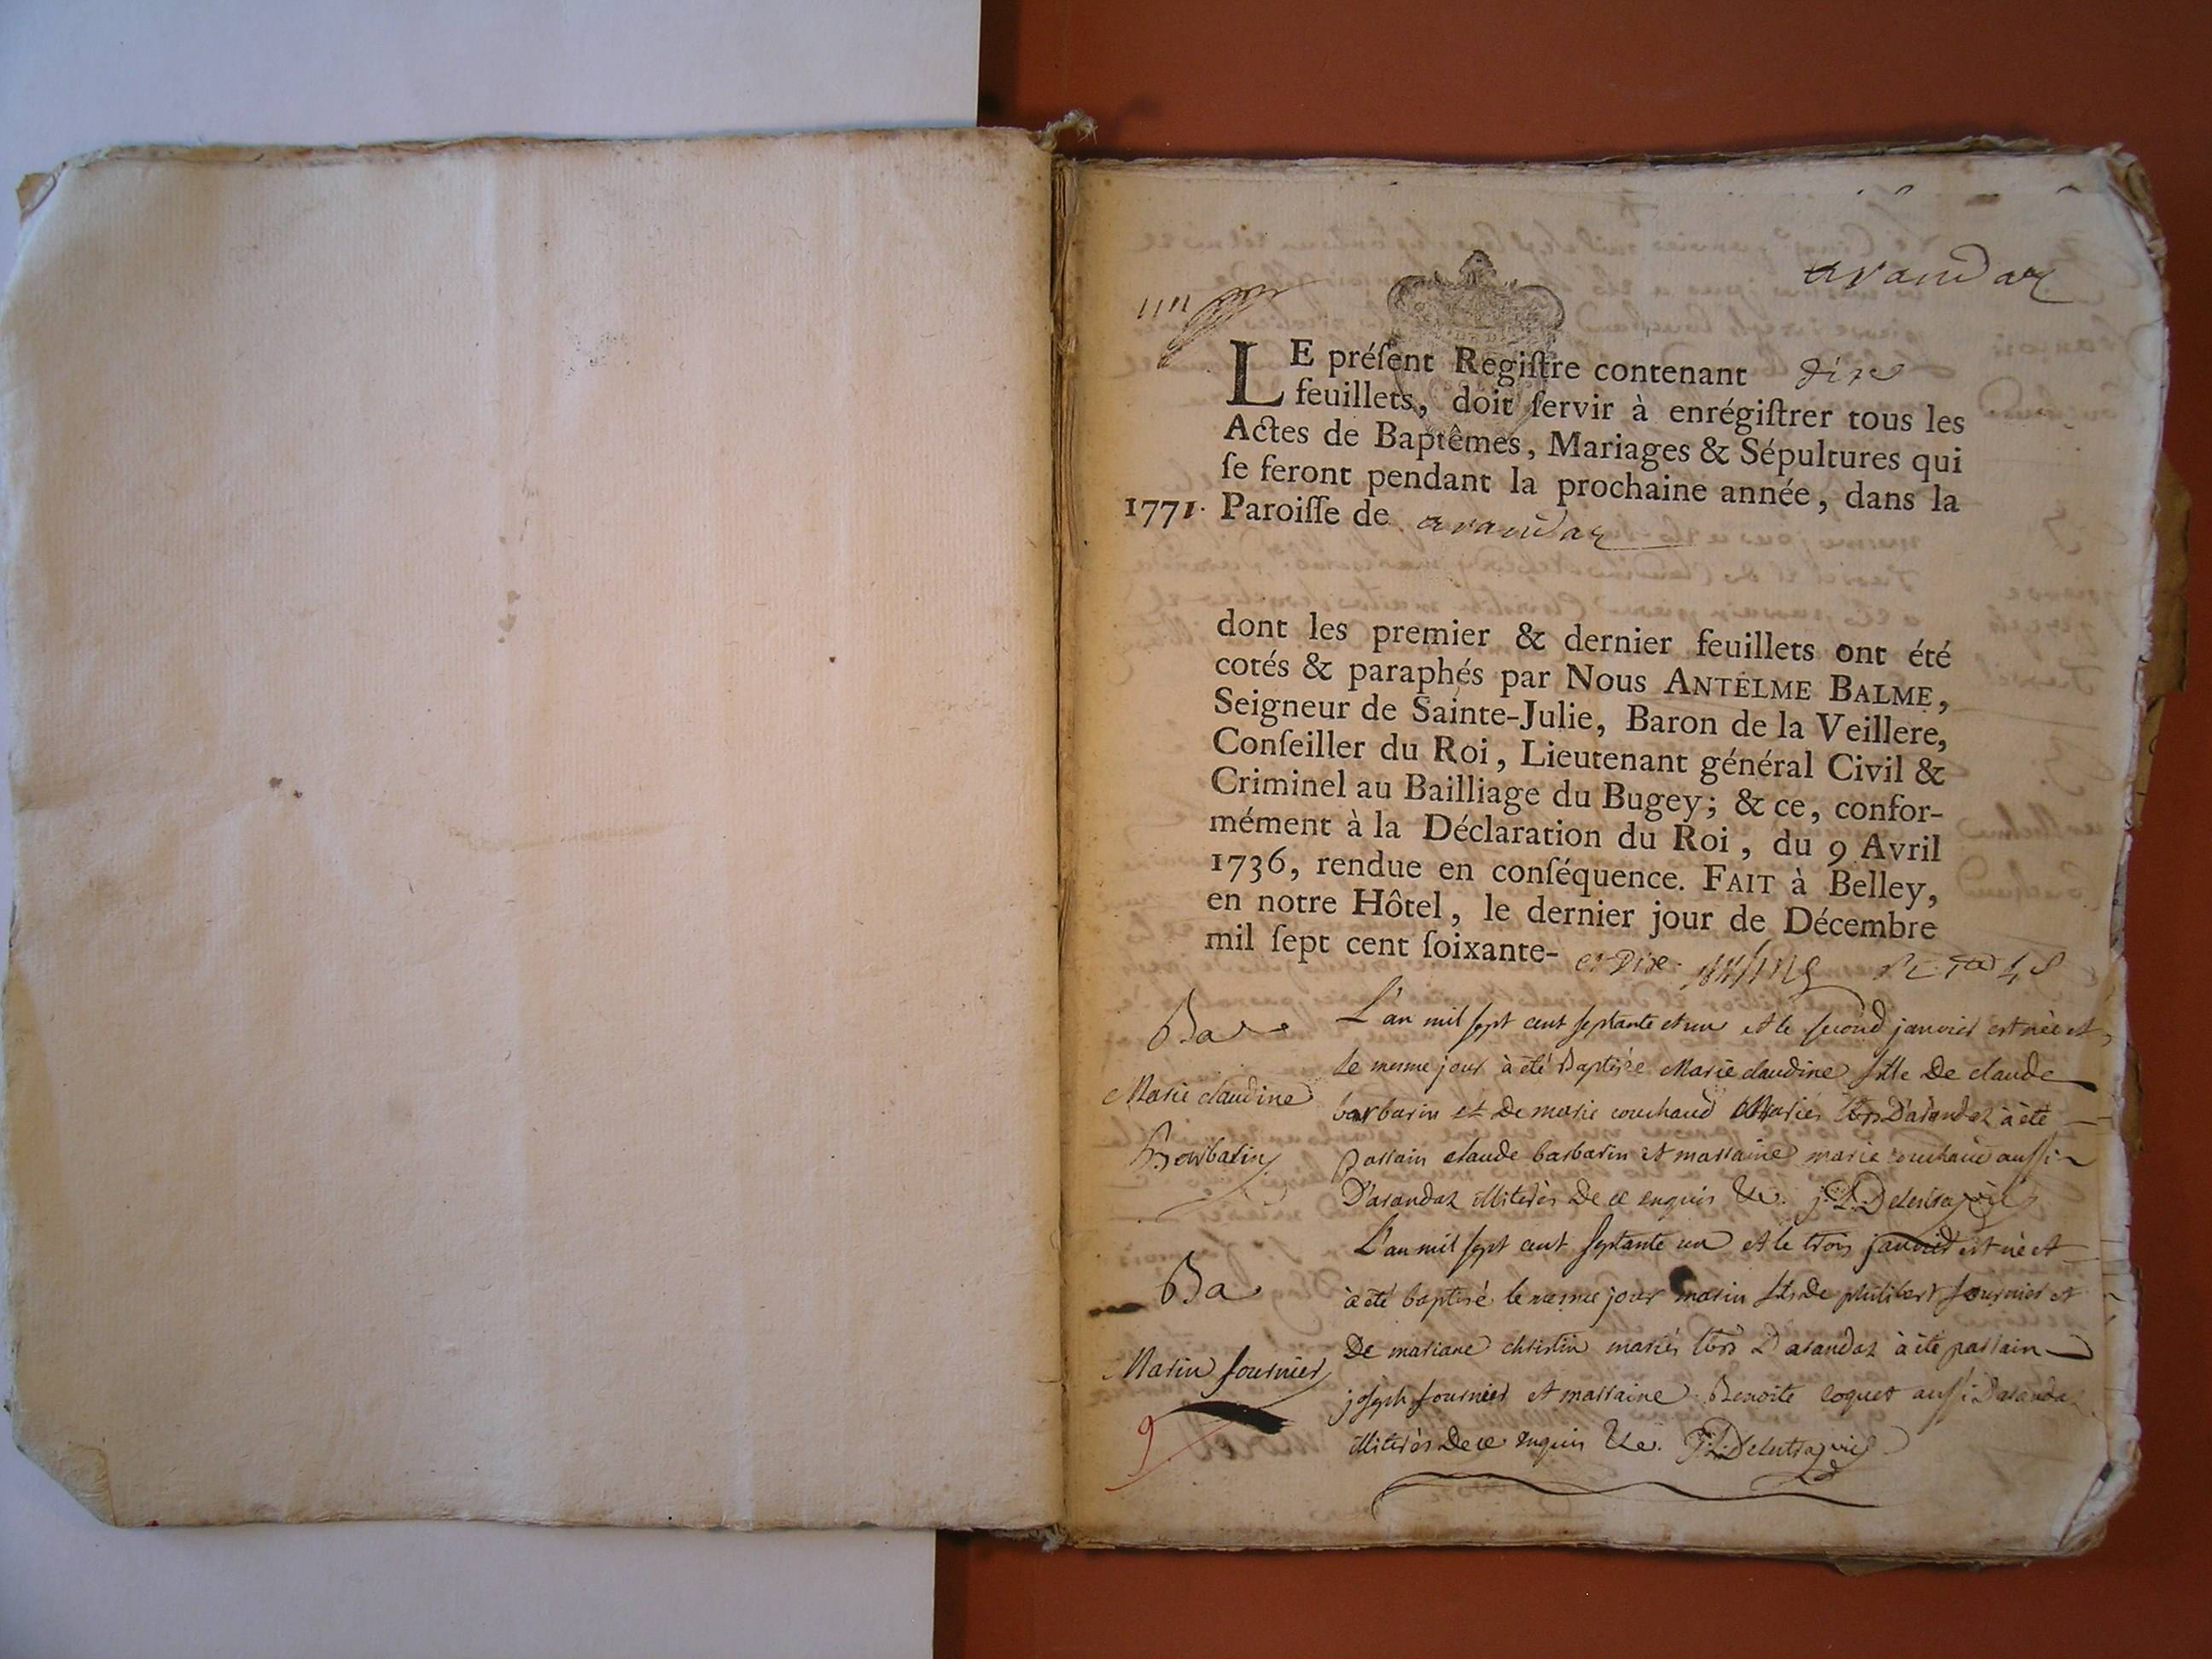 arandaz
LE préſent Regiſtre contenant dix
feuillets, doit ſervir à enrégiſtrer tous les
Actes de Baptêmes, Mariages & Sépultures qui
ſe feront pendant la prochaine année, dans la
1771. Paroiſſe de arandaz
dont les premier & dernier feuillets ont été
cotés & paraphés par Nous ANTELME BALME,
Seigneur de Sainte-Julie, Baron de la Veillere,
Conſeiller du Roi, Lieutenant général Civil &
Criminel au Bailliage du Bugey; & ce, confor-
mément à la Déclaration du Roi, du 9 Avril
1736, rendue en conſéquence. FAIT à Belley,
en notre Hôtel, le dernier jour de Décembre
mil ſept cent ſoixante- et Dix.
Ba
Marie claudine
Barbarin
L'an mil sept cent septante et un et le second janvier est née et
le mesme jour à été Baptisée Marie claudine fille De claude
barbarin et De marie couchaud Mariés D'arandaz à été
parrain claude barbarin et marraine marie couchaud aussi
D'arandaz illiterés De ce enquis
Ba
Marin fournier
9
L'an mil sept cent septante un et le trois janvier est né et
à été baptisé le mesme jour marin fils De philibert fournier et
De mariane christin mariés D'arandaz à été parrain
joseph fournier et marraine Benoite coquet aussi D'arandaz
illiterés De ce enquis